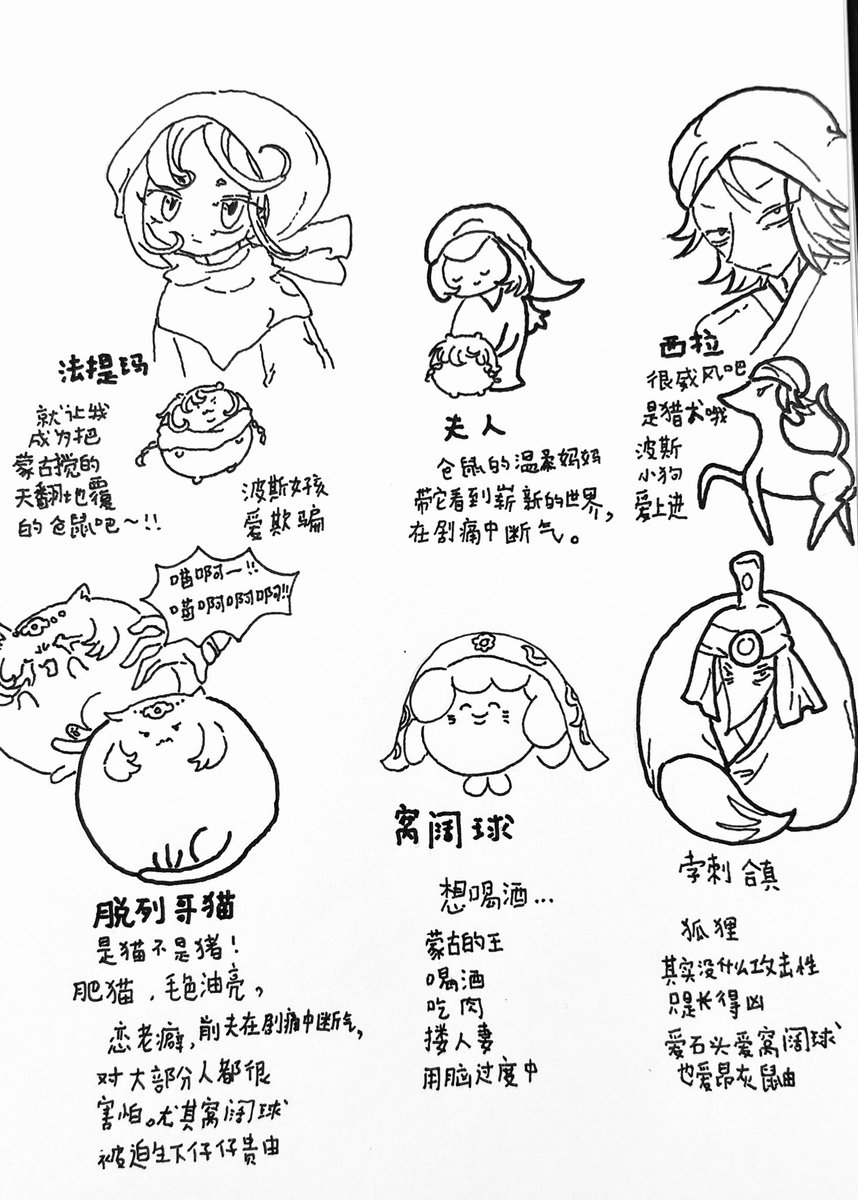 法提玛
就让我
成为把
蒙古搅的
天翻地覆
的仓鼠吧～!!
波斯女孩
爱欺骗
夫人
仓鼠的温柔妈妈
带它看到崭新的世界，
在剧痛中断气。
西拉
很威风吧
是猎犬哦
波斯
小狗
爱上进
喵啊一!!
喵啊啊啊啊!!
脱列哥猫
是猫不是猪!
肥猫，毛色油亮，
恋老癖，前夫在剧痛中断气，
对大部分人都很
害怕。尤其窝阔球
被迫生下仔仔贵由
窝阔球
想喝酒...
蒙古的王
喝酒
吃肉
搂人妻
用脑过度中
孛刺合真
狐狸
其实没什么攻击性
只是长得凶
爱石头爱窝阔球
也爱昂灰鼠由